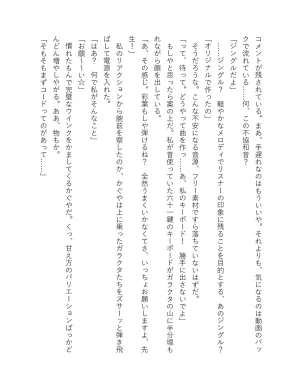 コメントが残されている。まあ、手遅れなのはもういいや。それよりも、気になるのは動画のバッ
クで流れている……何、この不協和音？
「ジングルだよ」
……ジングル？　軽やかなメロディでリスナーの印象に残ることを目的とする、あのジングル？
「オリジナルで作ったの」
そうだろうな。こんな不安になる音源、フリー素材ですら落ちていないはずだ。
「って、待って。どうやって曲を作っ……あ、私のキーボード！　勝手に出さないでよ」
もしやと思ったら案の上だ。私が昔使っていた六十一鍵のキーボードがガラクタの山に半分埋も
れながら顔を出している。
「あ、その感じ。彩葉もしや弾けるね？　全然うまくいかなくてさ、いっちょお願いしますよ、先
生！」
私のリアクションから腕前を察したのか、かぐやは上に乗ったガラクタたちをズサーッと弾き飛
ばして電源を入れた。
「はぁ？　何で私がそんなこと」
「お願〜い☆」
慣れたもんで完璧なウインクをかましてくるかぐやだ。くっ、甘え方のバリエーションばっかど
んどん増やしやがる。ああ、物もか。
「そもそもまずコードってのがあって……」